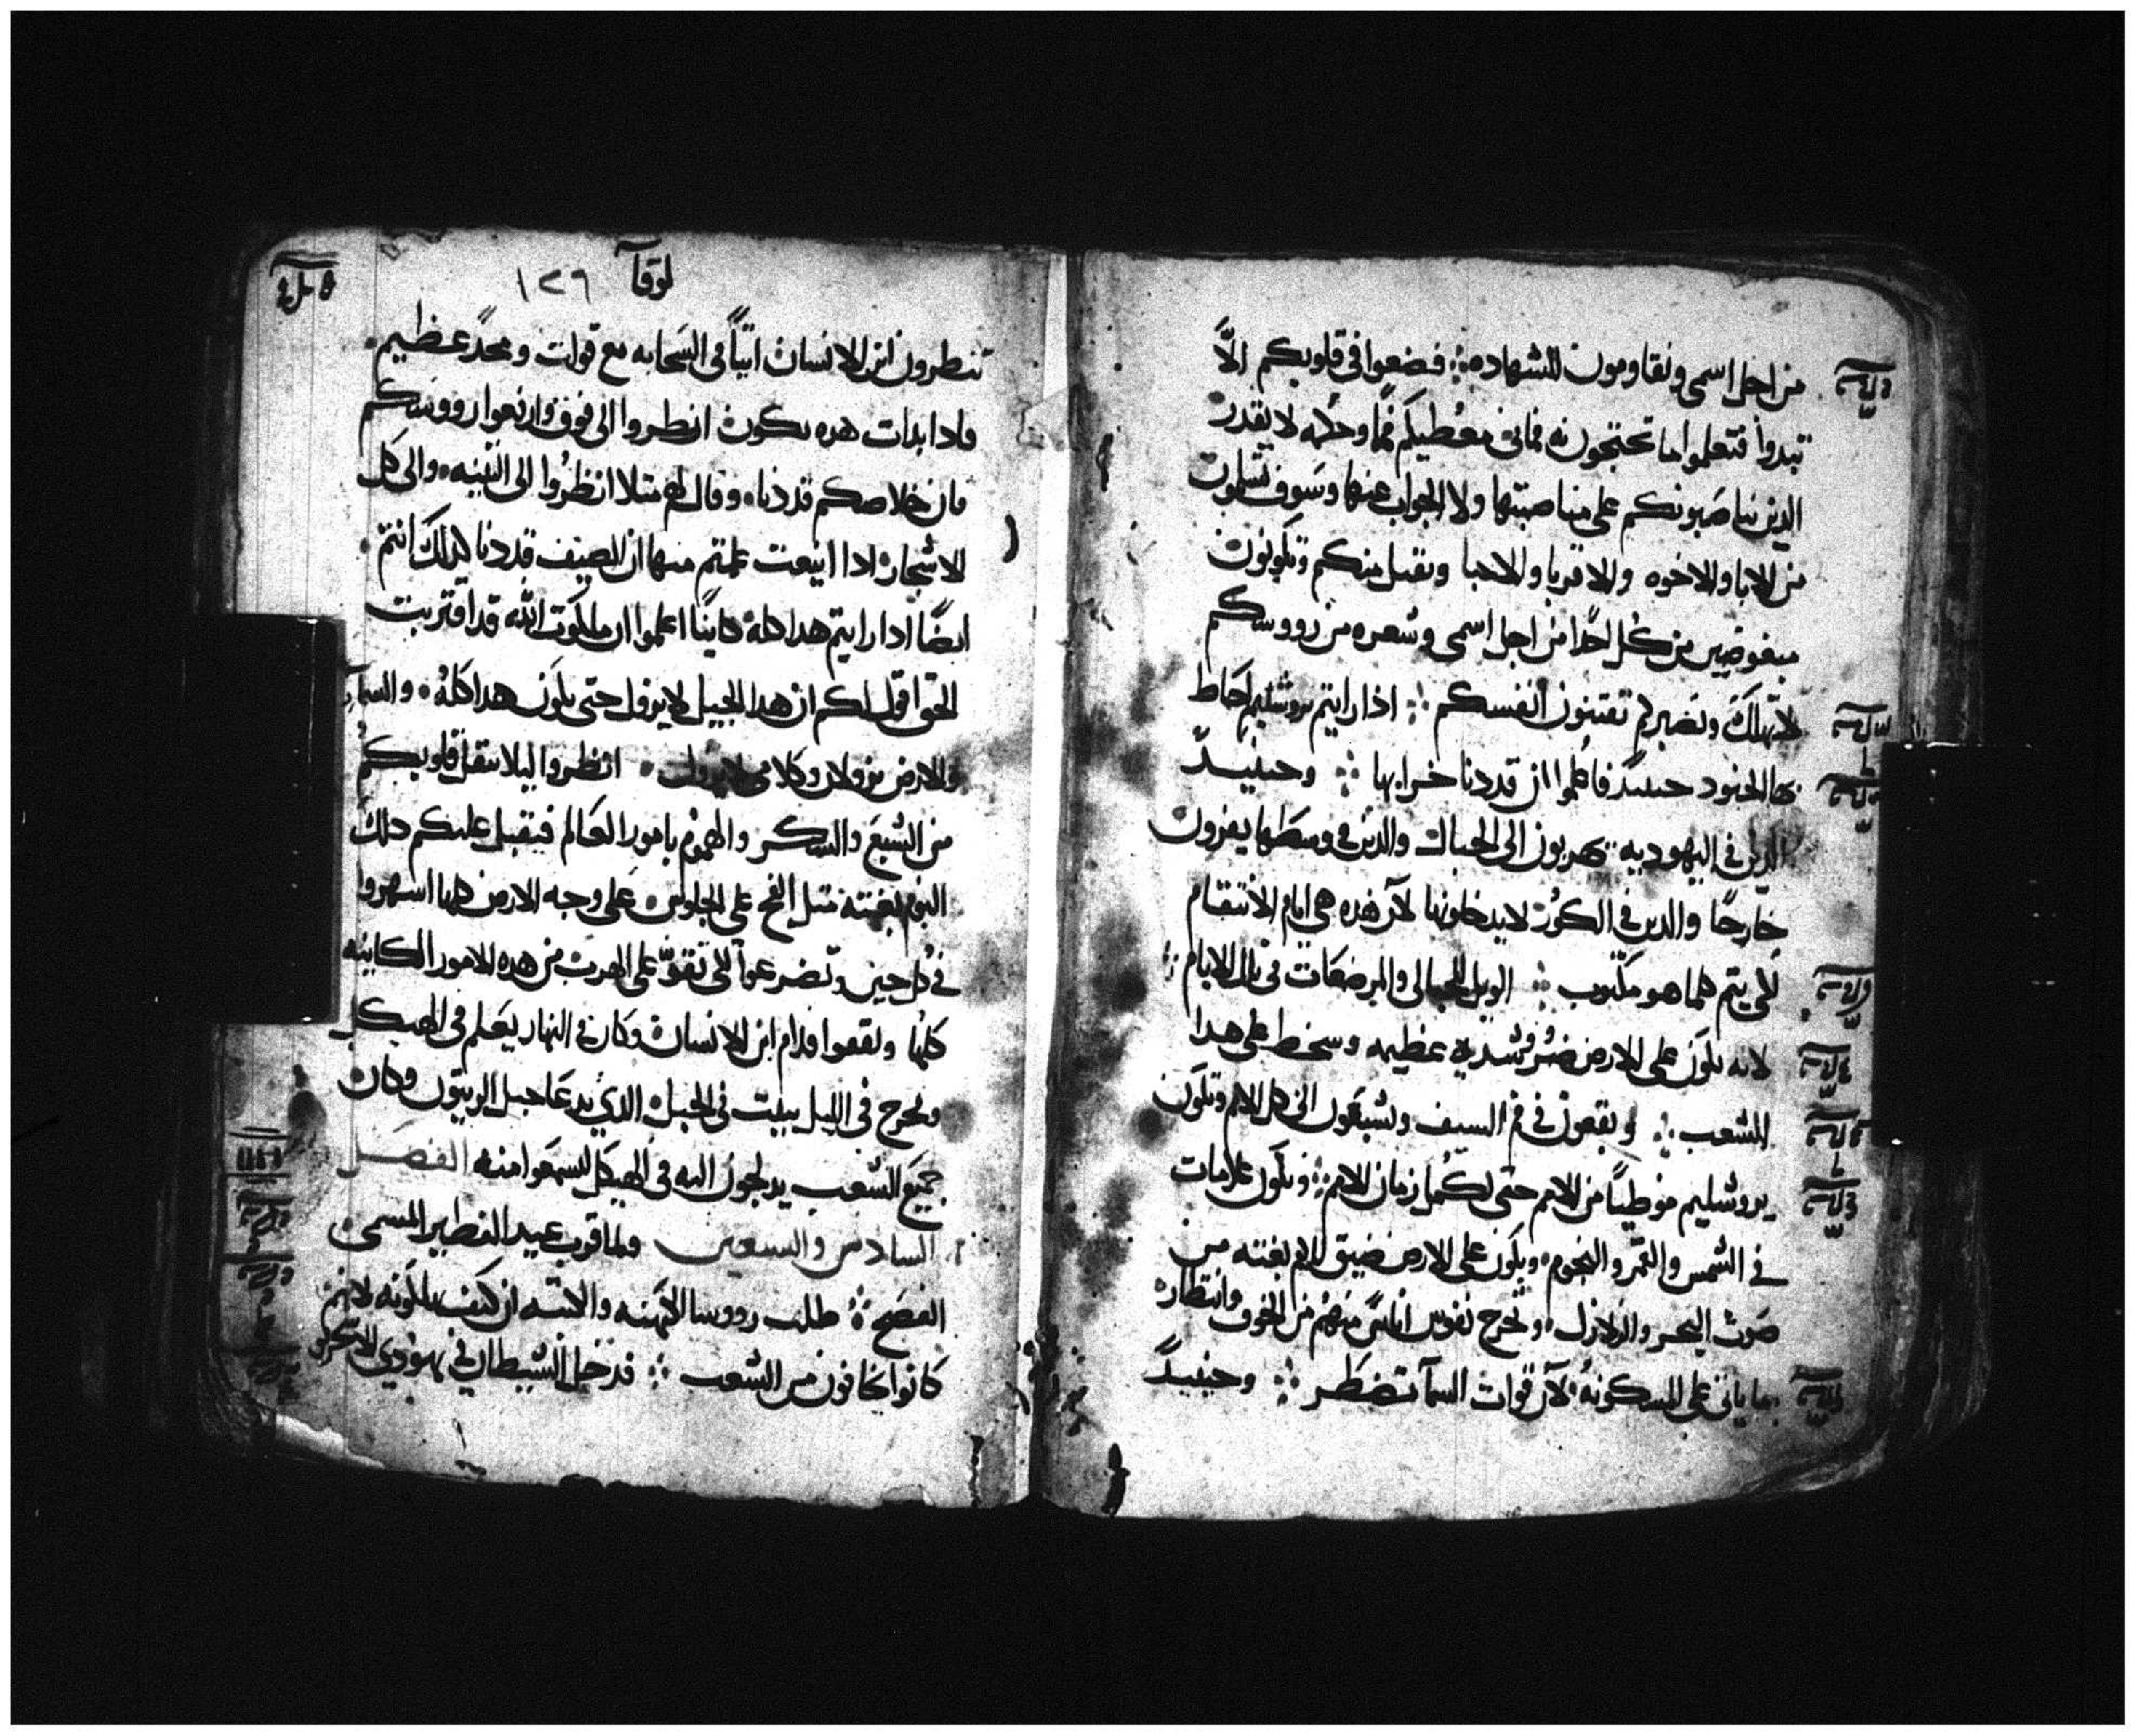 من اجل اسمي وتقاومون للشهاده فضعوا في قلوبكم الّا
تبدوا فتعلموا ما تحتجون به فاني معطيكم فمًا وحكمه لا يقدر
الذين يناصبونكم على مناصبتها ولا الجواب عنها وسوف تسلمون
من الابا والاخوه والاقربا والاحبا وتقتل منكم وتكونون
مبغوضين من كل احدًا من اجل اسمي وشعره من رووسكم
لا تهلك وبصبركم تقتنون انفسكم اذا رايتم يروشليم احاط
بها الجنود حينيد فاعلموا ان قد دنا خرابها وحينيدً
الدين في اليهوديه يهربون الى الجبال والدين في وسطها يفرون
خارجًا والدين في الكور لا يدخلونها لان هده هي ايام الانتقام
لكي يتم كلما هو مكتوب الويل للحبالى والمرضعات في تلك الايام
لانه يكون على الارض ضر وشديه عظيمه وسخط على هدا
الشعب ويقعون في فم السيف ويسبقون الى كل الامم وتكون
يروشليم موطيًا من الامم حتى تكمل زمان الامم وتكون علامات
في الشمس والقمر والنجوم ويكون على الارض ضيق الامم بغته من
صوت البحر والزلازل وتخرج نفوس اناسًا منهم من الخوف وانتظار
ما ياتي على المسكونه لان قوات السما تضطر وحينيدً
لوقا ١٢٦
تنطرون ابن الانسان اتيًا في السحابه مع قوات ومجدً عظيم
فادا بدات هده تكون انطروا الى فوق وارفعوا رووسكم
فان خلاصكم قد دنا وقال لهم متلا انظروا الى التينه والى كل
الاشجار ادا اينعت علمتم منها ان الصيف قد دنا كدلك انتم
ايضًا ادا رايتم هدا كله كاينًا اعلموا ان ملكوت الله قد اقتربت
الحق اقول لكم ان هدا الجيل لا يزول حتى يكون هدا كله والسما
والارض يزولان وكلامي لا يزول انظروا ليلا تتقل قلوبكم
من الشبع والسكر والهموم بامور العالم فيقبل عليكم دلك
اليوم بغته متل الفخ على الجلوس على وجه الارض كلها اسهروا
في كل حين وتضرعوا لكي تقوّ على الهرب من هده الامور الكاينه
كلها وتقفوا قدام ابن الانسان وكان في النهار يعلم في الهيكل
ويخرج في الليل يبيت في الجبل الدي يدعا جبل الزيتون وكان
جميع الشعب يدلجون اليه في الهيكل ليسمعوا منه الفصل
السادس والسبعين ولما قرب عيد الفطير المسمى
الفصح طلب رووسا الكهنه والكتبه ان كيف يهلكونه لانهم
كانوا يخافون من الشعب فدخل الشيطان في يهودي الاسخر